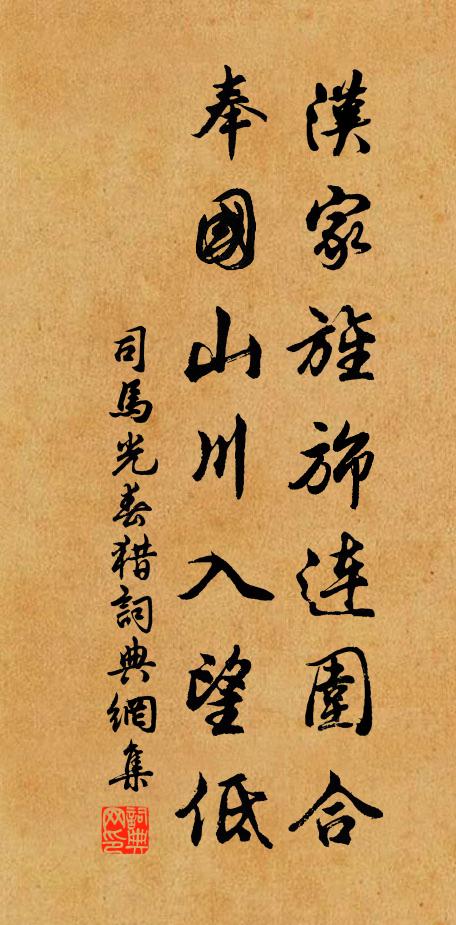 漢家旌旆連圍合
奉國山川入望低
司馬光春猎詞典網集
詞典网印